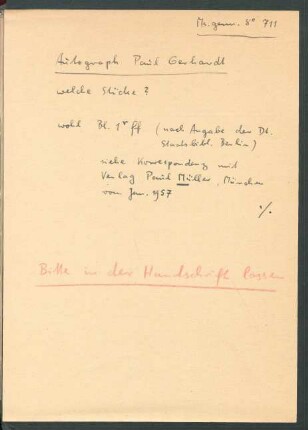 Ms. germ. 8° 711
Autograph Paul Gerhardt
welche Stücke?
wohl Bl. 1r ff (nach Angabe der Dt.
Staatsbibl. Berlin)
siehe Korrespondenz mit
Verlag Paul Müller, München
vom Jan. 1957
%.
Bitte in der Handschrift lassen